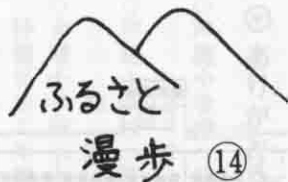 ふるさと
漫歩 ⑭